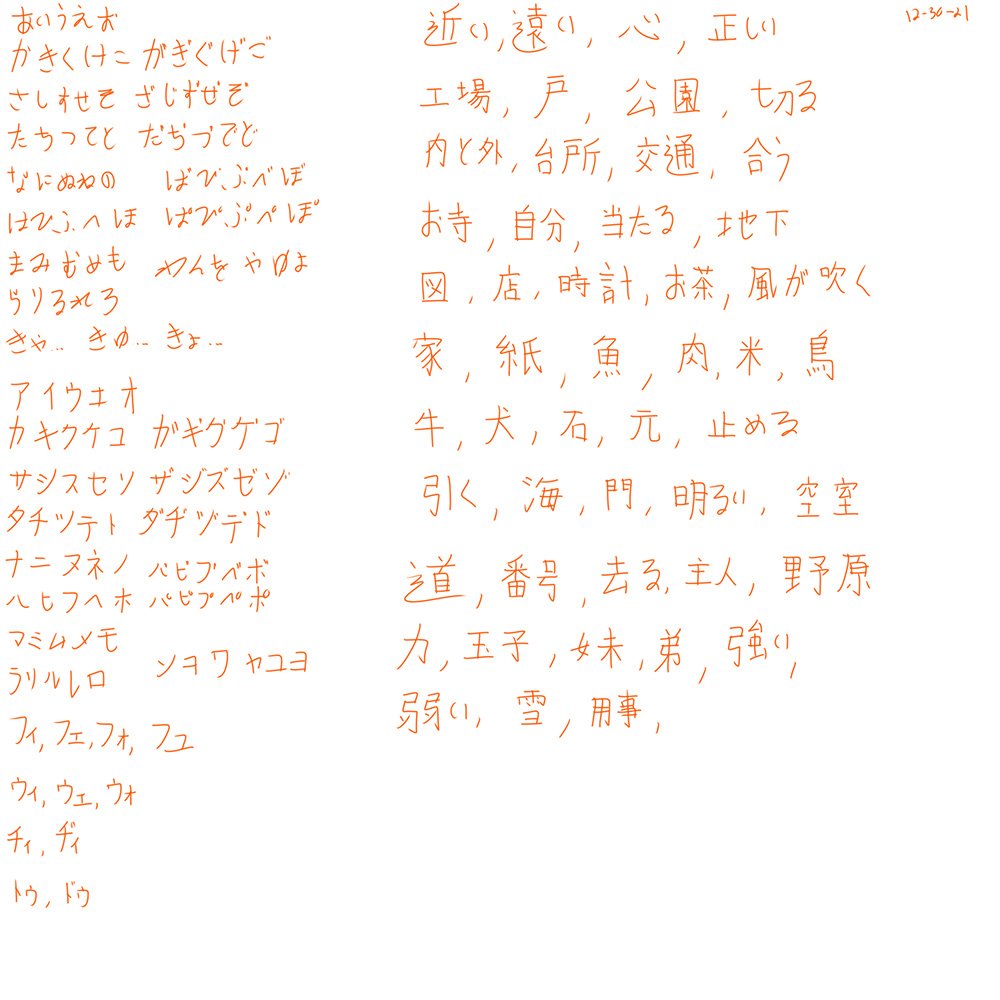 あいうえお
かきくけこ がぎぐげご
さしすせそ ざじずぜぞ
たちつてと だぢづでど
なにぬねの ばびぶべぼ
はひふへほ ぱぴぷぺぽ
まみむめも わんを やゆよ
らりるれろ
きゃ… きゅ… きょ…
アイウエオ
カキクケコ ガギグゲゴ
サシスセソ ザジズゼゾ
タチツテト ダヂヅデド
ナニヌネノ バビブベボ
ハヒフヘホ パピプペポ
マミムメモ
ラリルレロ ンヨワ ヤユヨ
フィ, フェ, フォ, フュ
ウィ, ウェ, ウォ
チィ, ヂィ
トゥ, ドゥ
12-30-21
近い, 遠い, 心, 正しい
工場, 戸, 公園, 切る
内と外, 台所, 交通, 合う
お寺, 自分, 当たる, 地下
図, 店, 時計, お茶, 風が吹く
家, 紙, 魚, 肉, 米, 鳥
牛, 犬, 石, 元, 止める
引く, 海, 門, 明るい, 空室
道, 番号, 去る, 主人, 野原
力, 玉子, 妹, 弟, 強い,
弱い, 雪, 用事,